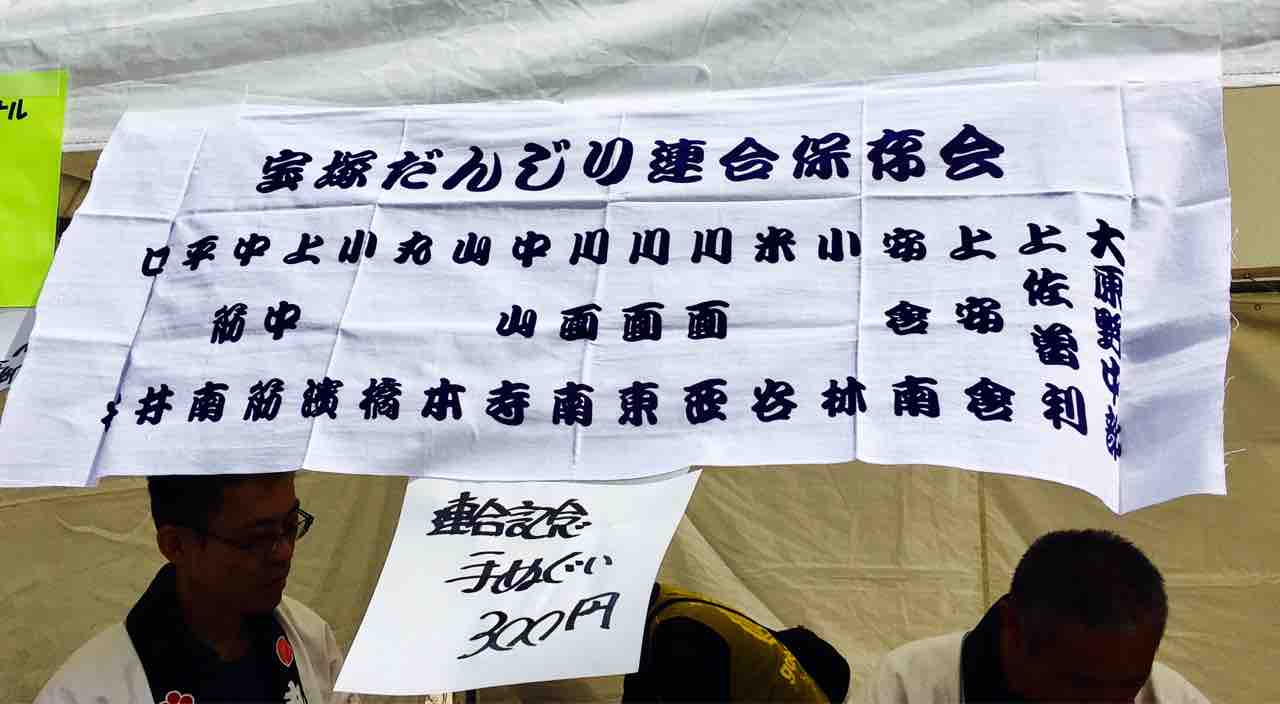 宝塚だんじり連合保存会
大原野中部
上佐曽利
上安倉
安倉南
小林
米谷
川面西
川面東
川面南
中山寺
山本
丸橋
小濱
上中筋
中筋南
平井
口
連合記念
手ぬぐい
300円